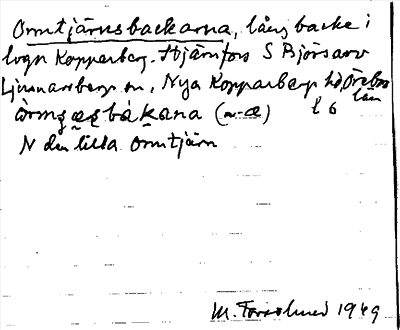 Ormtjärnsbackarna, lång backe i
lvgn Kopparberg - Hjärnfors S Björsarv
Ljusnarsberg sn, Nya Kopparberg hd, Örebro
län
(~æ) l 6
N den lilla Ormtjärn
M. Forsslund 1949